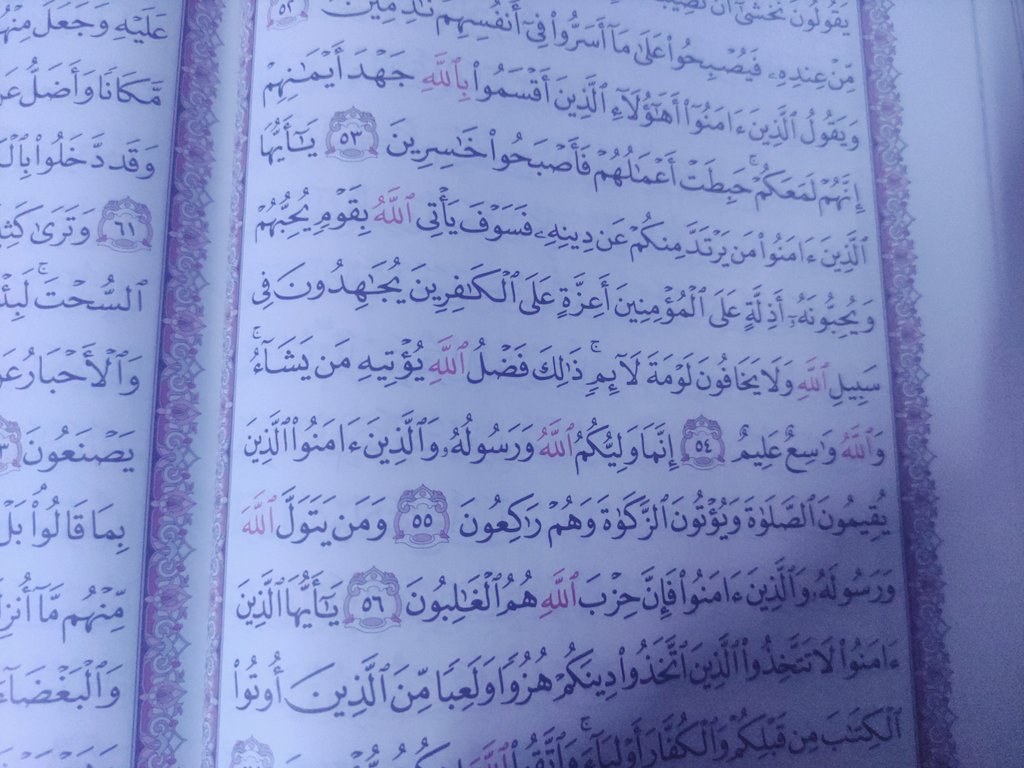 يَقُولُونَ نَخْشَىٰٓ أَن
مِّنْ عِندِهِۦ فَيُصْبِحُوا۟ عَلَىٰ مَآ أَسَرُّوا۟ فِىٓ أَنفُسِهِمْ نَٰدِمِينَ ٥٢
وَيَقُولُ ٱلَّذِينَ ءَامَنُوٓا۟ أَهَٰٓؤُلَآءِ ٱلَّذِينَ أَقْسَمُوا۟ بِٱللَّهِ جَهْدَ أَيْمَٰنِهِمْ
إِنَّهُمْ لَمَعَكُمْ ۚ حَبِطَتْ أَعْمَٰلُهُمْ فَأَصْبَحُوا۟ خَٰسِرِينَ ٥٣ يَٰٓأَيُّهَا
ٱلَّذِينَ ءَامَنُوا۟ مَن يَرْتَدَّ مِنكُمْ عَن دِينِهِۦ فَسَوْفَ يَأْتِى ٱللَّهُ بِقَوْمٍ يُحِبُّهُمْ
وَيُحِبُّونَهُۥٓ أَذِلَّةٍ عَلَى ٱلْمُؤْمِنِينَ أَعِزَّةٍ عَلَى ٱلْكَٰفِرِينَ يُجَٰهِدُونَ فِى
سَبِيلِ ٱللَّهِ وَلَا يَخَافُونَ لَوْمَةَ لَآئِمٍ ۚ ذَٰلِكَ فَضْلُ ٱللَّهِ يُؤْتِيهِ مَن يَشَآءُ ۚ
وَٱللَّهُ وَٰسِعٌ عَلِيمٌ ٥٤ إِنَّمَا وَلِيُّكُمُ ٱللَّهُ وَرَسُولُهُۥ وَٱلَّذِينَ ءَامَنُوا۟ ٱلَّذِينَ
يُقِيمُونَ ٱلصَّلَوٰةَ وَيُؤْتُونَ ٱلزَّكَوٰةَ وَهُمْ رَٰكِعُونَ ٥٥ وَمَن يَتَوَلَّ ٱللَّهَ
وَرَسُولَهُۥ وَٱلَّذِينَ ءَامَنُوا۟ فَإِنَّ حِزْبَ ٱللَّهِ هُمُ ٱلْغَٰلِبُونَ ٥٦ يَٰٓأَيُّهَا ٱلَّذِينَ
ءَامَنُوا۟ لَا تَتَّخِذُوا۟ ٱلَّذِينَ ٱتَّخَذُوا۟ دِينَكُمْ هُزُوًا وَلَعِبًا مِّنَ ٱلَّذِينَ أُوتُوا۟
ٱلْكِتَٰبَ مِن قَبْلِكُمْ وَٱلْكُفَّارَ أَوْلِيَآءَ ۚ وَٱتَّقُوا۟ ٱللَّهَ
عَلَيْهِ وَجَعَلَ مِنْهُمُ
مَّكَانًا وَأَضَلُّ
وَقَد دَّخَلُوا۟
٦١ وَتَرَىٰ
ٱلسُّحْتَ ۚ
وَٱلْأَحْبَارُ
يَصْنَعُونَ
بِمَا قَالُوا۟ ۘ بَلْ
مِّنْهُم مَّآ